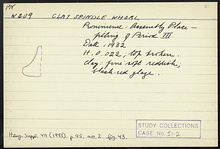 PN
W 209 CLAY SPINDLE WHORL
Provenience: Assembly Place -
filling of Period III
Date: 1932
H. 0.022; top broken.
clay: fine soft reddish,
black-red glaze.
STUDY COLLECTIONS
CASE No. 5-2
Hesp. Suppl. VII (1943), p. 95, no. 2. fig. 43.